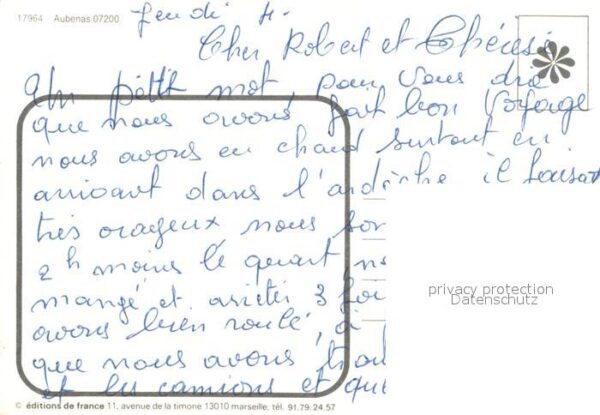 17964 Aubenas 07200
Jeudi 4.
Cher Robert et Thérèse
Un petit mot, pour vous dire
que nous avons fait bon voyage
nous avons eu chaud surtout en
arrivant dans l'ardèche il faisait
très orageux nous
2h moins le quart,
mangé et arrêter 3
avons bien roulé, à
que nous avons
et les camions et que
privacy protection
Datenschutz
© éditions de france 11, avenue de la timone 13010 marseille, tél. 91.79.24.57